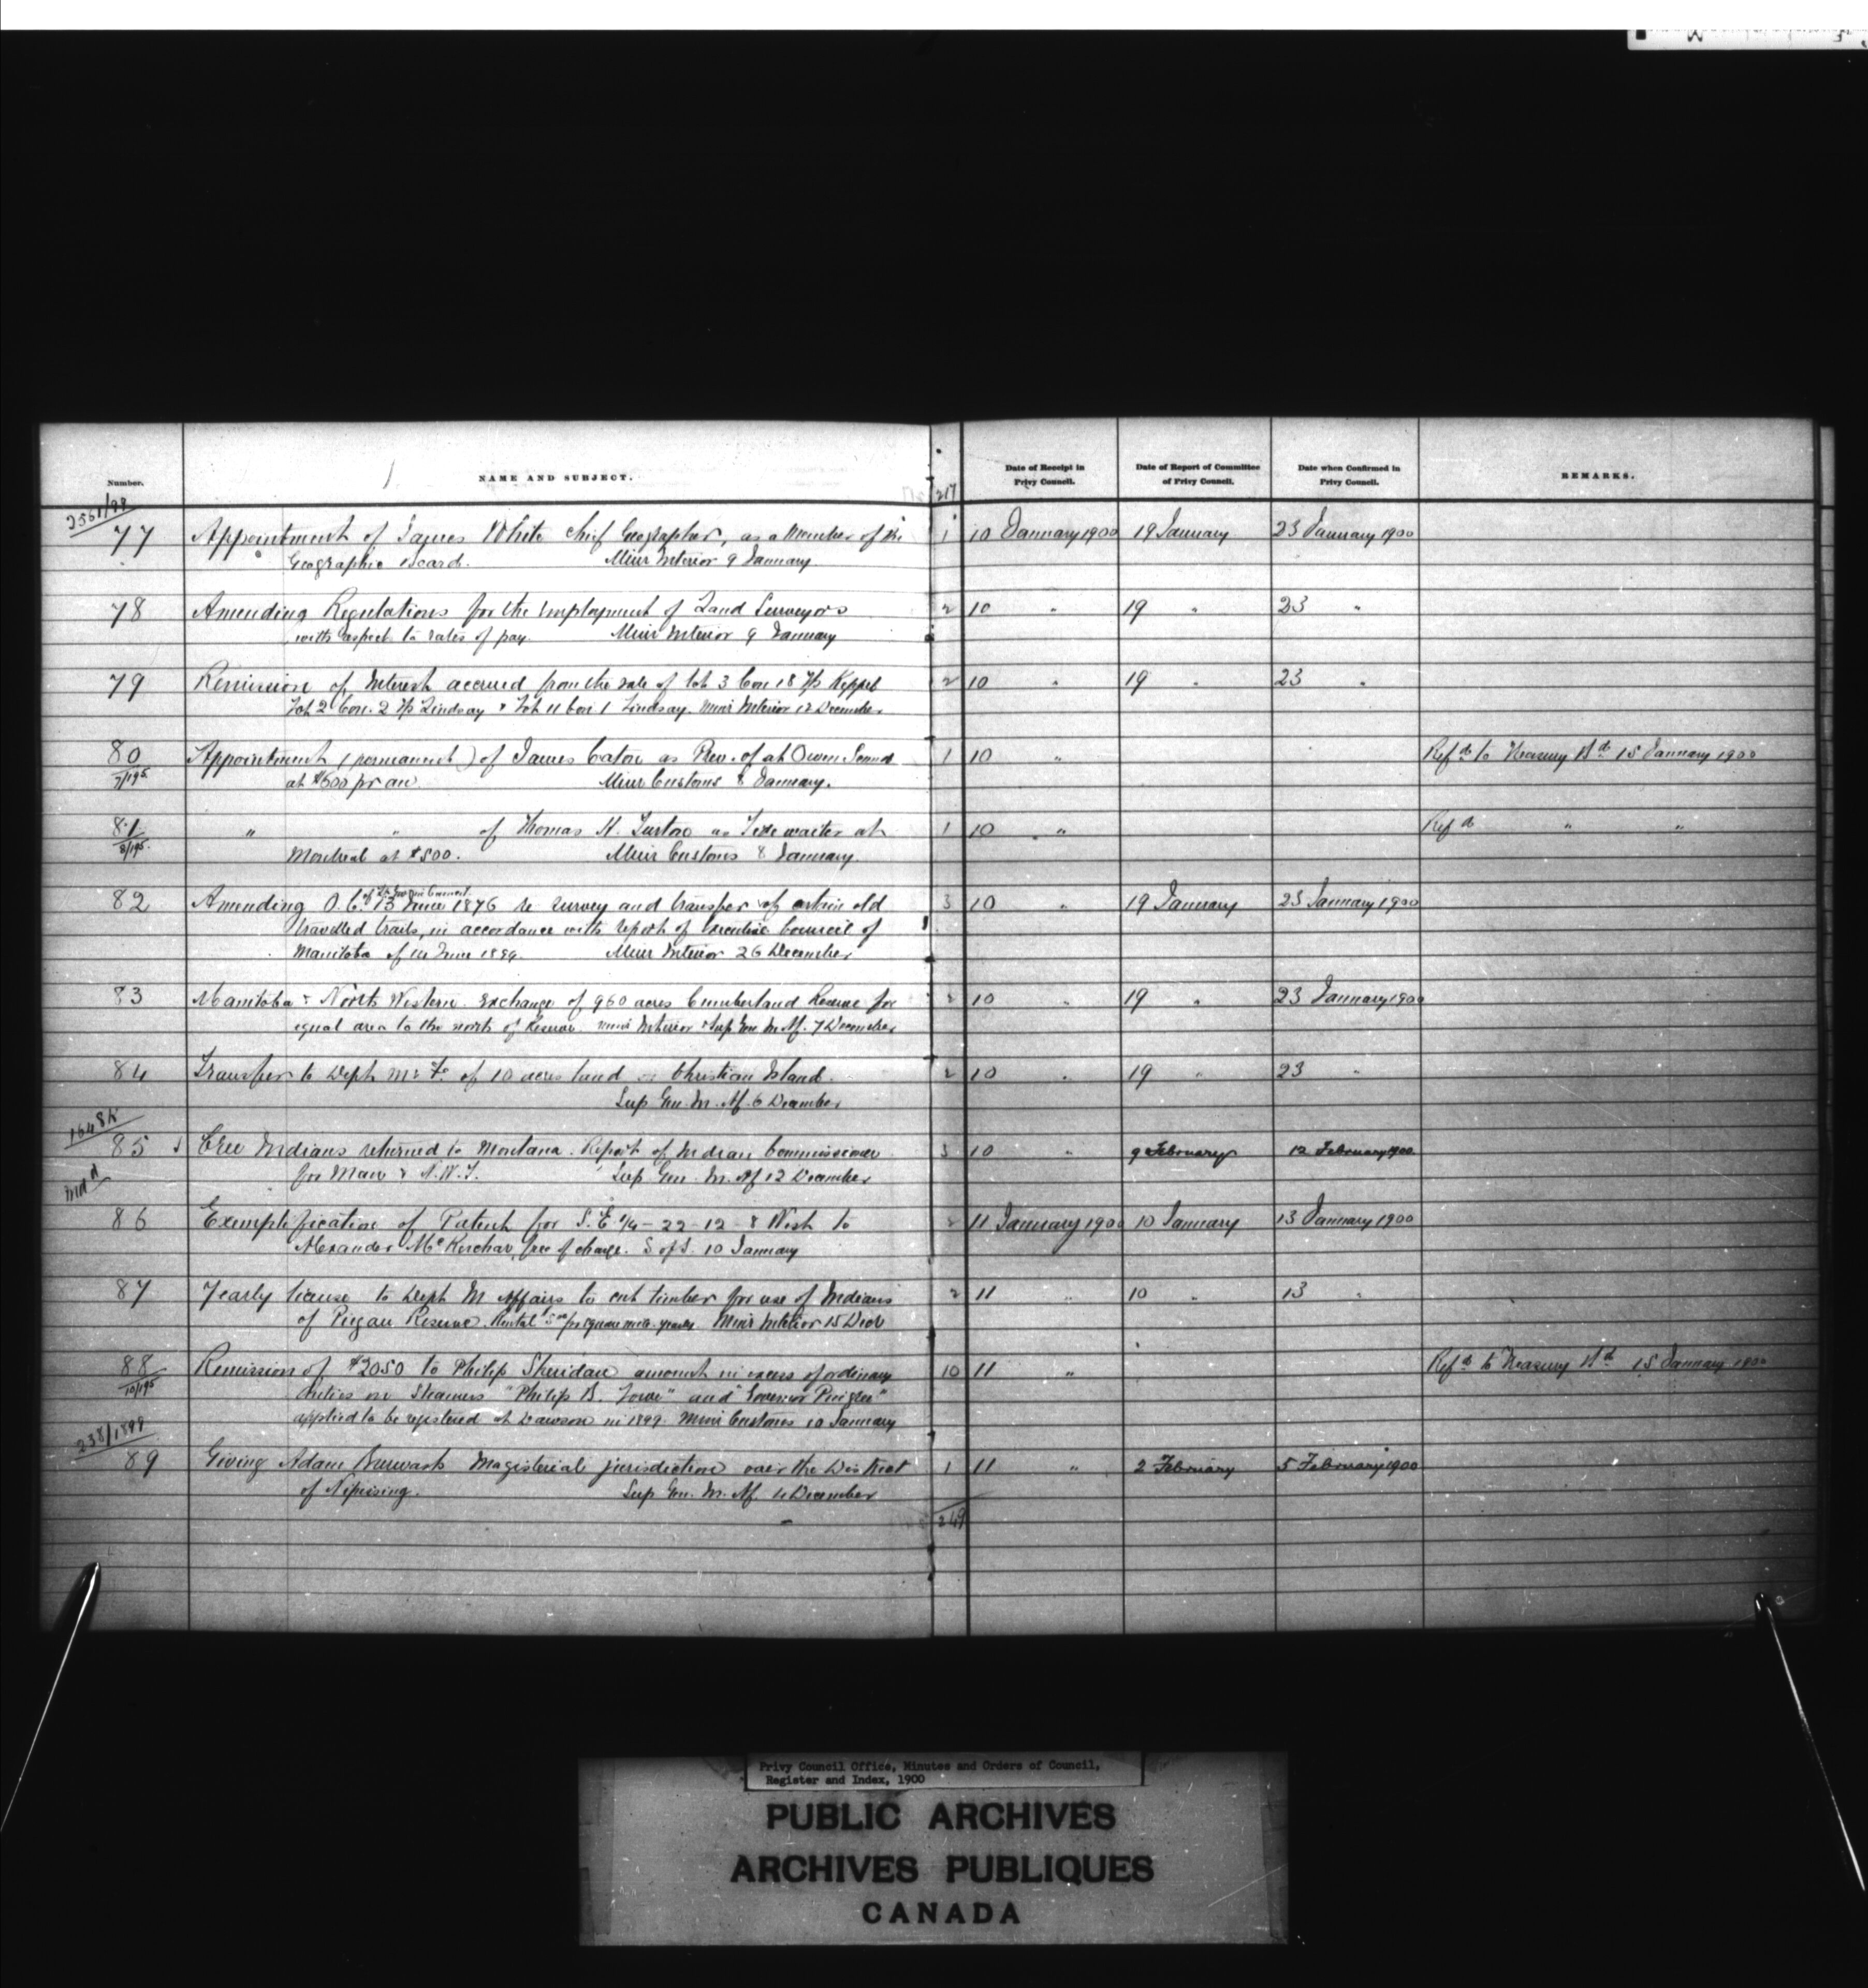 Number.
NAME AND SUBJECT.
217
Date of Receipt in Privy Council.
Date of Report of Committee of Privy Council.
Date when Confirmed in Privy Council.
REMARKS.
2561/99
77 Appointment of James White Chief Geographer, as a Member of the 1 10 January 1900 19 January 23 January 1900
Geographic Board. Minr Interior 9 January
78 Amending Regulations for the employment of Land Surveyors 2 10 " 19 " 23 "
with respect to rates of pay. Minr Interior 9 January
79 Remission of Interest accrued from the sale of lot 3 Con 18 T/p Keppel 2 10 " 19 " 23 "
Lot 2 Con. 2 T/p Lindsay & Lot 11 Con 1 Lindsay. Minr Interior 12 December
80 Appointment (permanent) of James Caton as Prev. of at Owen Sound 1 10 " Refd to Treasury Bd 15 January 1900
7/195 at $600 pr an Minr Customs 8 January.
81 " " of Thomas H. as Tide waiter at 1 10 " Refd " "
8/195 Montreal at $500. Minr Customs 8 January.
of Lt Gov in Council
82 Amending O.C. 13 June 1876 re survey and transfer of certain old 3 10 " 19 January 23 January 1900
travelled trails, in accordance with report of Executive Council of
Manitoba of 14 June 1899. Minr Interior 26 December
83 Manitoba & North Western exchange of 960 acres Cumberland Reserve for 2 10 " 19 " 23 January 1900
equal area to the north of Reserve. Minr Interior & Sup Gen In Af. 7 December
84 Transfer to Dept M & F. of 10 acres land on Christian Island. 2 10 " 19 " 23 "
Sup Gen. In. Af. 6 December
1648K
85 Cree Indians returned to Montana. Report of Indian Commissioner 3 10 " 9 February 12 February 1900
for Man & N.W.T. Sup Gen. In. Af 12 December
86 Exemplification of Patent for S.E 1/4 - 22 - 12 - 8 West to 2 11 January 1900 10 January 13 January 1900
Alexander McKerchar, free of charge. S of S. 10 January
87 Yearly license to Dept In Affairs to cut timber for use of Indians 2 11 " 10 " 13 "
of Piegan Reserve. Rental $5.00 pr square mile yearly Minr Interior 15 Decr
88 Remission of $2050 to Philip Sheridan amount in excess of ordinary 10 11 " Refd to Treasury Bd 15 January 1900
10/195 duties on Steamers "Philip B. Low" and "Governor Pingree"
applied to be registered at Dawson in 1899. Minr Customs 10 January
238/1899
89 Giving Adam Burwash Magisterial jurisdiction over the District 1 11 " 2 February 5 February 1900
of Nipissing. Sup Gen. In. Af. 4 December
249
Privy Council Office, Minutes and Orders of Council,
Register and Index, 1900
PUBLIC ARCHIVES
ARCHIVES PUBLIQUES
CANADA